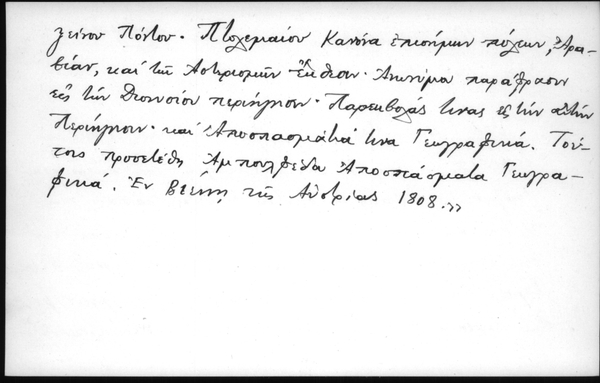 ξείνου Πόντου. Πτολεμαίου Κανόνα ἐπισήμων πόλεων, Ἀρα-
βίαν, καὶ τῶν Ἀστερισμῶν Ἔκθεσιν. Ἀνωνύμου παράφρασιν
εἰς τὴν Διονυσίου περιήγησιν. Παρεκβολάς τινας εἰς τὴν αὐτὴν
Περιήγησιν. καὶ Ἀποσπασμάτιά τινα Γεωγραφικά. Τού-
τοις προσετέθη Ἀμπουλφέδα Ἀποσπάσματα Γεωγρα-
φικά. Ἐν Βιέννῃ τῆς Αὐστρίας 1808.»